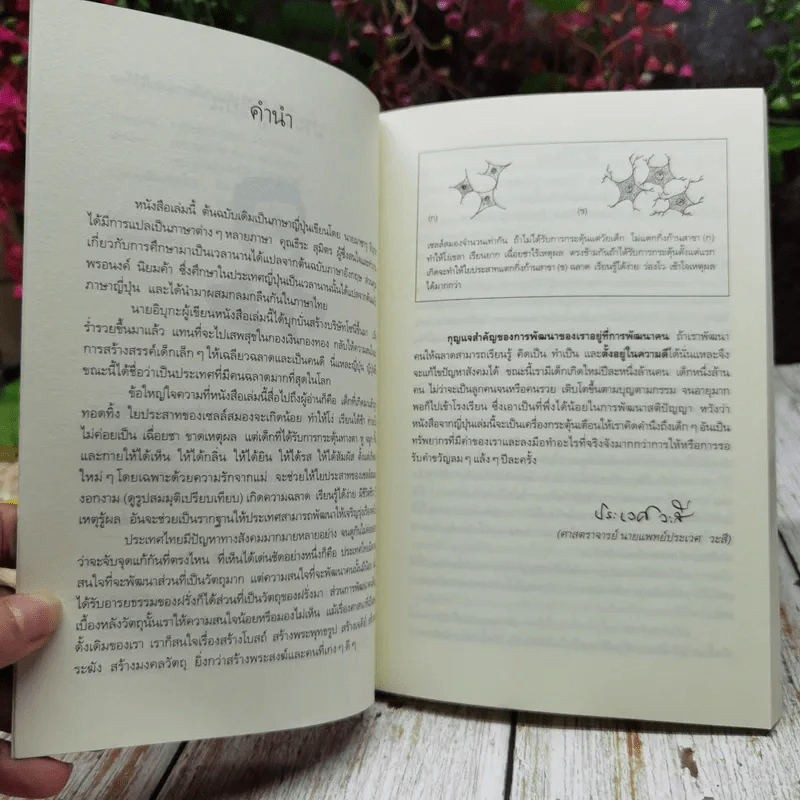 คำนำ
หนังสือเล่มนี้ ต้นฉบับเดิมเป็นภาษาญี่ปุ่นเขียนโดย นายมาซารุ
ได้มีการแปลเป็นภาษาต่าง ๆ หลายภาษา คุณธีระ สุมิตร ผู้ซึ่งสนใจ
เกี่ยวกับการศึกษามาเป็นเวลานานได้แปลจากต้นฉบับภาษาอังกฤษ
พรอนงค์ นิยมค้า ซึ่งศึกษาในประเทศญี่ปุ่นเป็นเวลานานนั้นได้แปลจาก
ภาษาญี่ปุ่น และได้นำมาผสมกลมกลืนกันในภาษาไทย
นายอิบุกะผู้เขียนหนังสือเล่มนี้ได้บุกบั่นสร้างบริษัทโซนี่ขึ้นมา
ร่ำรวยขึ้นมาแล้ว แทนที่จะไปเสพสุขในกองเงินกองทอง กลับให้ความ
การสร้างสรรค์เด็กเล็ก ๆ ให้เฉลียวฉลาดและเป็นคนดี นี่แหละญี่ปุ่น
ขณะนี้ได้ชื่อว่าเป็นประเทศที่มีคนฉลาดมากที่สุดในโลก
ข้อใหญ่ใจความที่หนังสือเล่มนี้สื่อไปถึงผู้อ่านก็คือ เด็กที่เกิดมา
ทอดทิ้ง ใยประสาทของเซลล์สมองจะเกิดน้อย ทำให้โง่ เรียนได้ช้า
ไม่ค่อยเป็น เฉื่อยชา ขาดเหตุผล แต่เด็กที่ได้รับการกระตุ้นทางตา หู จมูก
และกายให้ได้เห็น ให้ได้กลิ่น ให้ได้ยิน ให้ได้รส ให้ได้สัมผัส ตั้งแต่
ใหม่ ๆ โดยเฉพาะด้วยความรักจากแม่ จะช่วยให้ใยประสาทของเซลล์สมอง
งอกงาม (ดูรูปสมมุติเปรียบเทียบ) เกิดความฉลาด เรียนรู้ได้ง่าย
เหตุรู้ผล อันจะช่วยเป็นรากฐานให้ประเทศสามารถพัฒนาให้เจริญรุ่งเรือง
ประเทศไทยมีปัญหาทางสังคมมากมายหลายอย่าง จนดูกันไม่ค่อยออก
ว่าจะจับจุดแก้กันที่ตรงไหน ที่เห็นได้เด่นชัดอย่างหนึ่งก็คือ ประเทศไทย
สนใจที่จะพัฒนาส่วนที่เป็นวัตถุมาก แต่ความสนใจที่จะพัฒนาคนนั้นมีน้อย
ได้รับอารยธรรมของฝรั่งก็ได้ส่วนที่เป็นวัตถุของฝรั่งมา ส่วนการพัฒนาคน
เบื้องหลังวัตถุนั้นเราให้ความสนใจน้อยหรือมองไม่เห็น แม้เรื่องศาสนา
ดั้งเดิมของเรา เราก็สนใจเรื่องสร้างโบสถ์ สร้างพระพุทธรูป สร้างเจดีย์
ระฆัง สร้างมงคลวัตถุ ยิ่งกว่าสร้างพระสงฆ์และคนที่เก่ง ๆ ดี ๆ
(ก) (ข)
เซลล์สมองจำนวนเท่ากัน ถ้าไม่ได้รับการกระตุ้นแต่วัยเด็ก ไม่แตกกิ่งก้านสาขา (ก)
ทำให้โง่เขลา เรียนยาก เฉื่อยชาไร้เหตุผล ตรงข้ามกันถ้าได้รับการกระตุ้นตั้งแต่แรก
เกิดจะทำให้ใยประสาทแตกกิ่งก้านสาขา (ข) ฉลาด เรียนรู้ได้ง่าย ว่องไว เข้าใจเหตุผล
ได้มากกว่า
กุญแจสำคัญของการพัฒนาของเราอยู่ที่การพัฒนาคน ถ้าเราพัฒนา
คนให้ฉลาดสามารถเรียนรู้ คิดเป็น ทำเป็น และตั้งอยู่ในความดีได้นั่นแหละจึง
จะแก้ไขปัญหาสังคมได้ ขณะนี้เรามีเด็กเกิดใหม่ปีละหนึ่งล้านคน เด็กหนึ่งล้าน
คน ไม่ว่าจะเป็นลูกคนจนหรือคนรวย เติบโตขึ้นตามบุญตามกรรม จนอายุมาก
พอก็ไปเข้าโรงเรียน ซึ่งเอาเป็นที่พึ่งได้น้อยในการพัฒนาสติปัญญา หวังว่า
หนังสือจากญี่ปุ่นเล่มนี้จะเป็นเครื่องกระตุ้นเตือนให้เราคิดคำนึงถึงเด็ก ๆ อันเป็น
ทรัพยากรที่มีค่าของเราและลงมือทำอะไรที่จริงจังมากกว่าการให้หรือการรอ
รับคำขวัญลม ๆ แล้ง ๆ ปีละครั้ง
ประเวศ วะสี
(ศาสตราจารย์ นายแพทย์ประเวศ วะสี)